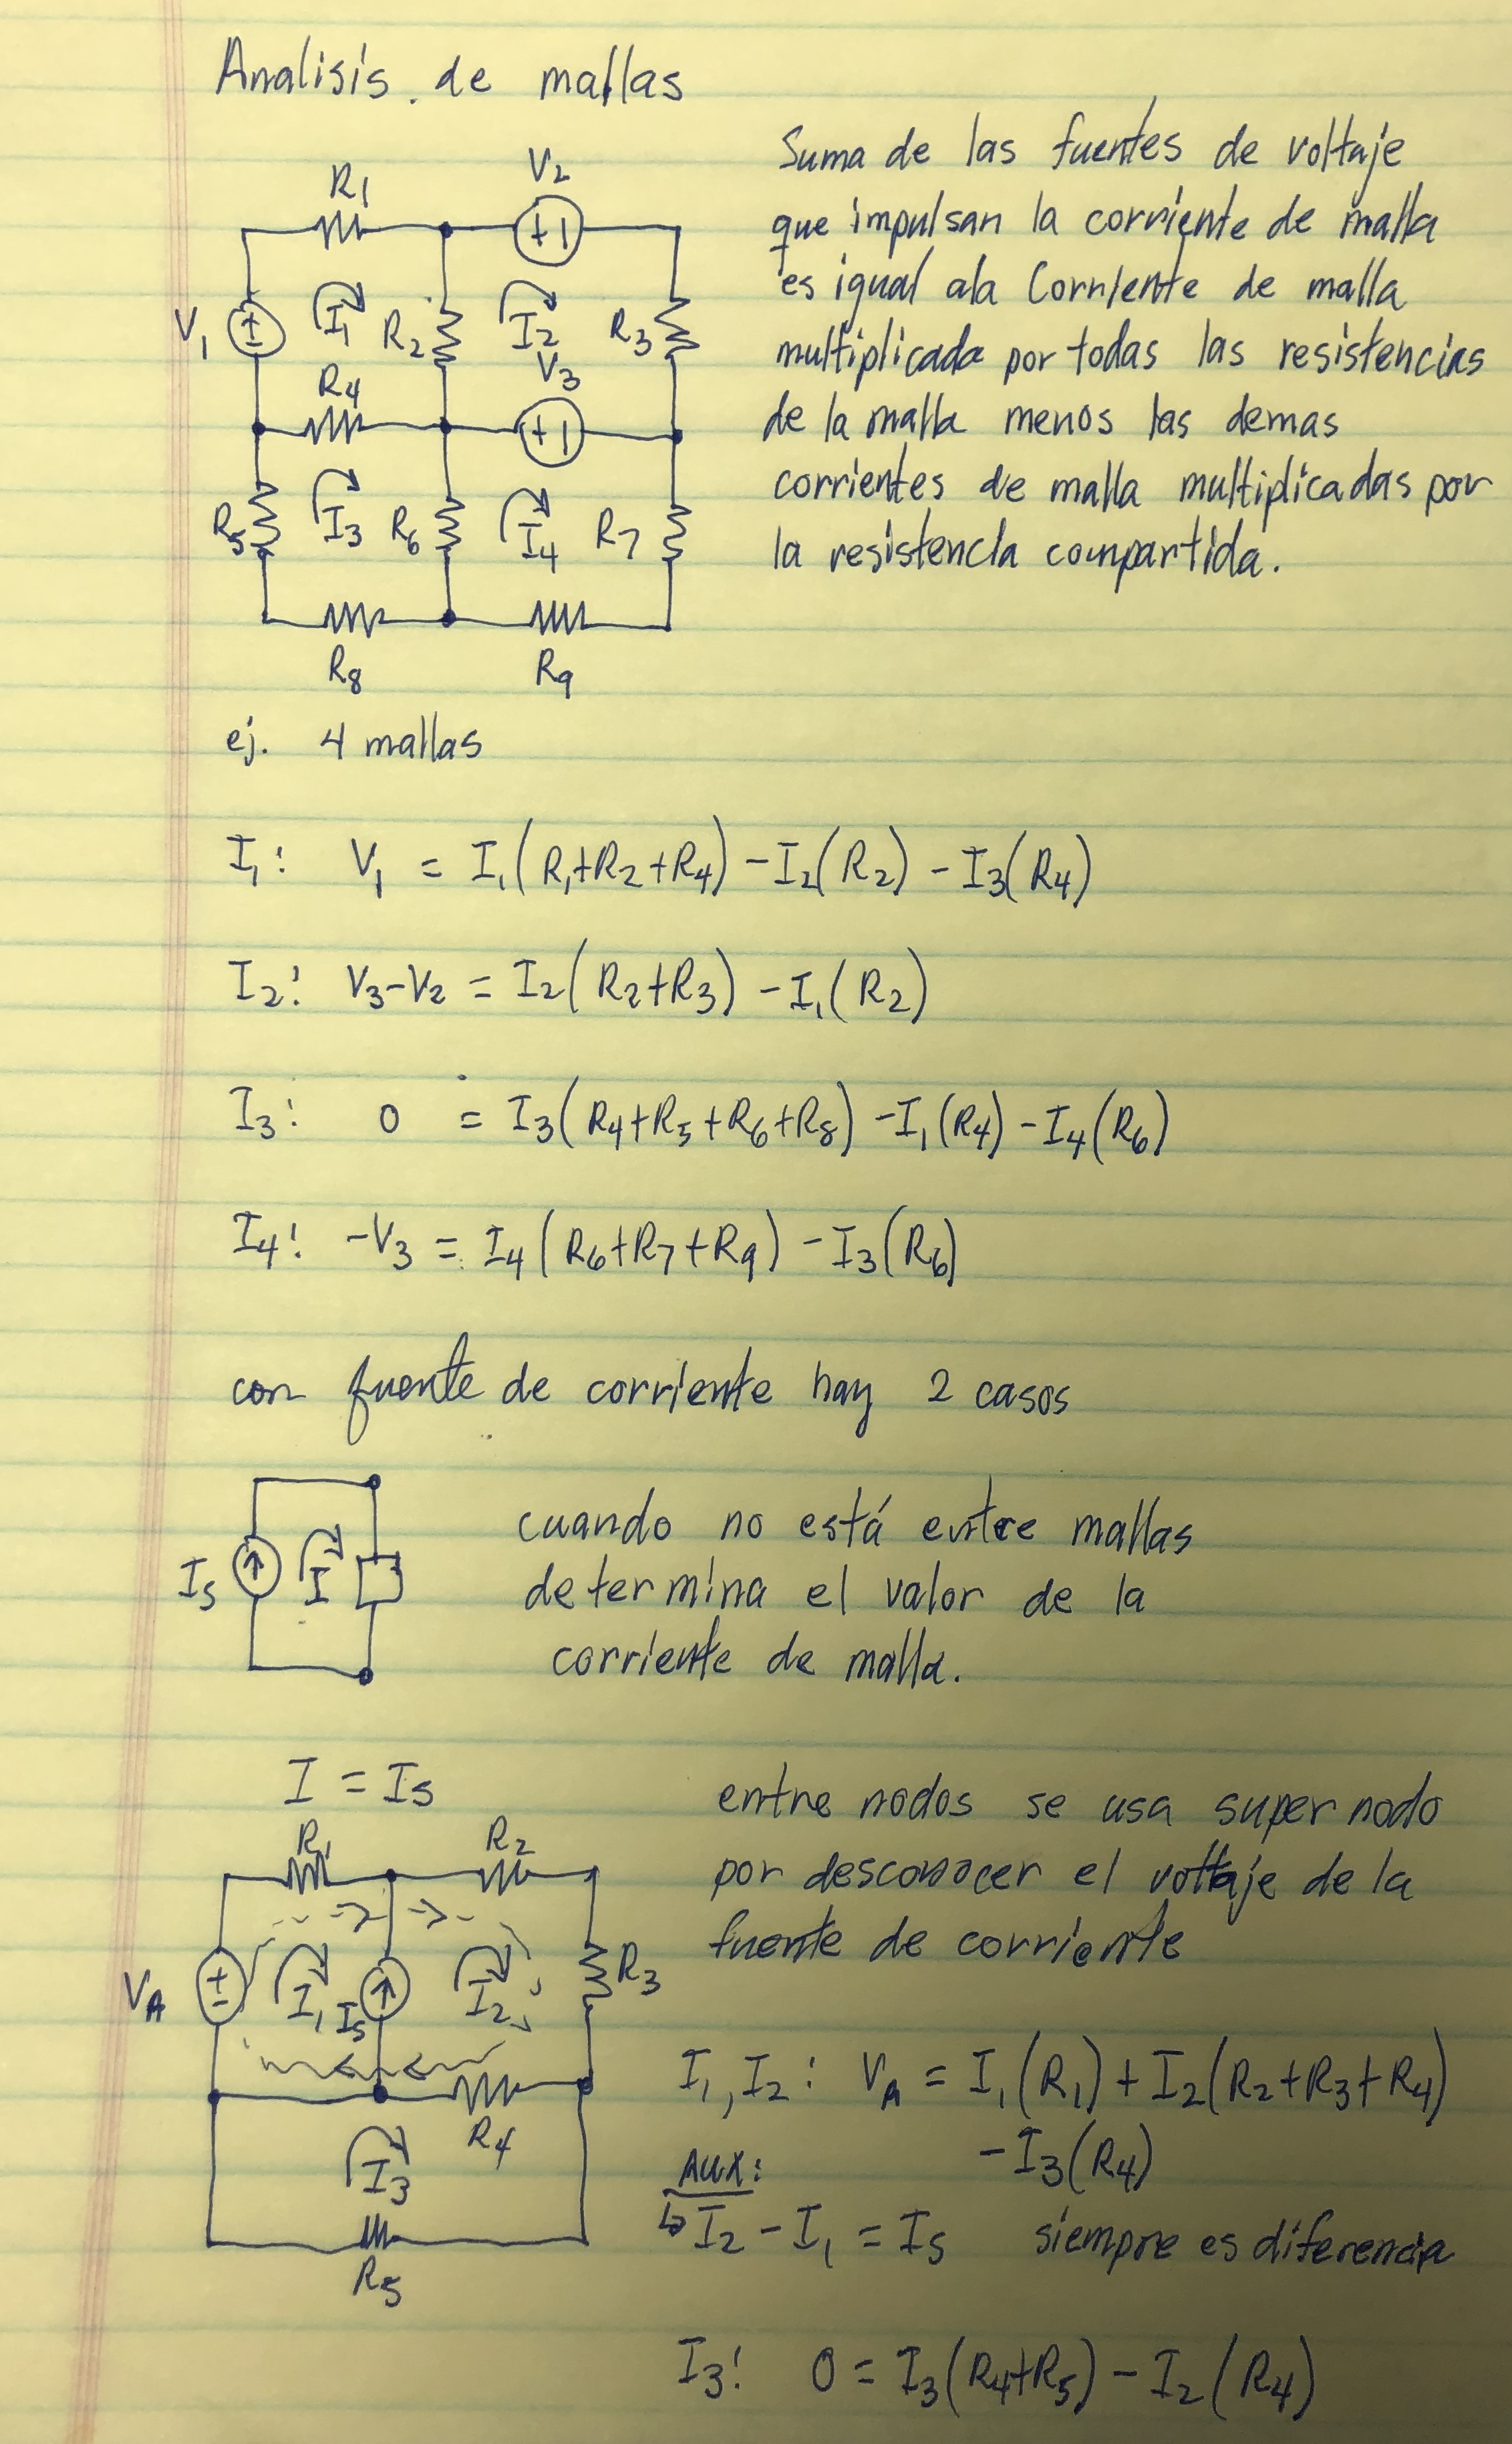 Analisis de mallas
Suma de las fuentes de voltaje
que impulsan la corriente de malla
es igual ala Corriente de malla
multiplicada por todas las resistencias
de la malla menos las demas
corrientes de malla multiplicadas por
la resistencia compartida.
R1
V2
+ -
V1
+ -
I1
R2
I2
R3
R4
V3
+ -
R5
I3
R6
I4
R7
R8
R9
ej. 4 mallas
I1: V1 = I1(R1+R2+R4) - I2(R2) - I3(R4)
I2: V3-V2 = I2(R2+R3) - I1(R2)
I3: 0 = I3(R4+R5+R6+R8) - I1(R4) - I4(R6)
I4: -V3 = I4(R6+R7+R9) - I3(R6)
con fuente de corriente hay 2 casos
Is
I
cuando no está entre mallas
determina el valor de la
corriente de malla.
I = Is
entre nodos se usa super nodo
por desconocer el voltaje de la
fuente de corriente
R1
R2
VA
+ -
I1
Is
I2
R3
R4
I3
R5
I1, I2: VA = I1(R1) + I2(R2+R3+R4)
- I3(R4)
Aux:
↳ I2 - I1 = Is siempre es diferencia
I3: 0 = I3(R4+R5) - I2(R4)